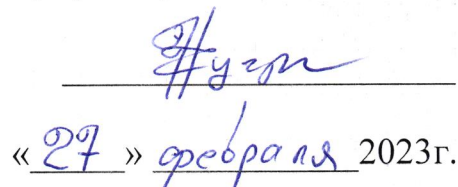 «27» февраля 2023г.